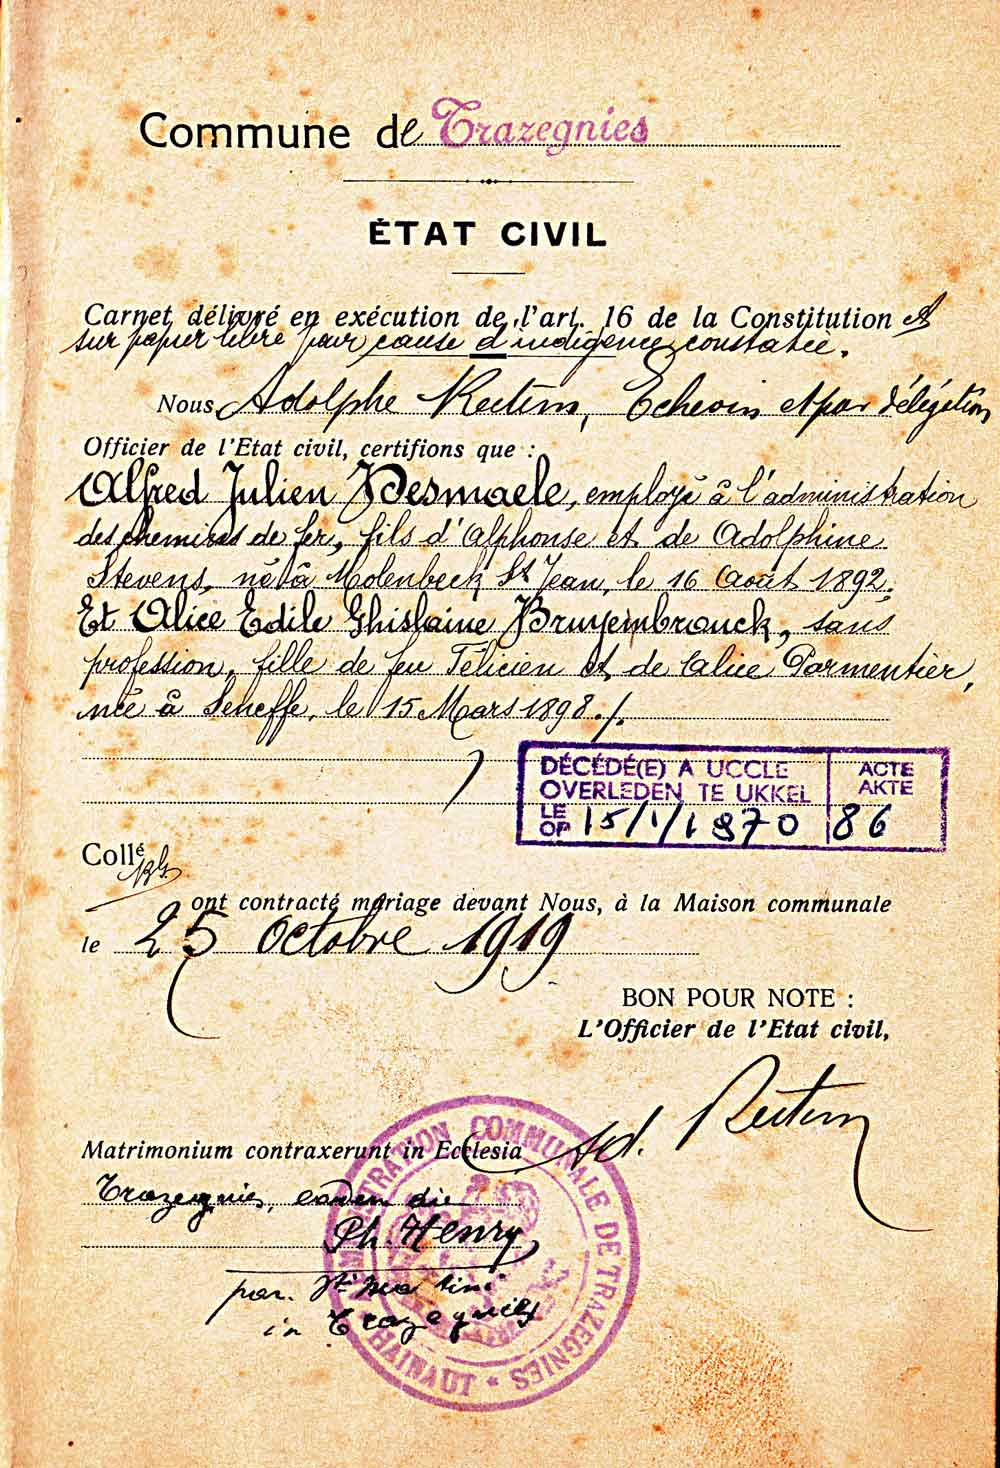 Commune de Trazegnies
ÉTAT CIVIL
Carnet délivré en exécution de l'art. 16 de la Constitution et
sur papier libre pour cause d'indigence constatée.
Nous, Adolphe Echevin et par délégation
Officier de l'Etat civil, certifions que :
Alfred Julien Desmaele, employé à l'administration
des chemins de fer, fils d'Alphonse et de Adolphine
Stevens, né à Molenbeek St Jean, le 16 Août 1892.
Et Alice Edile Ghislaine Bruyembrouck, sans
profession, fille de feu Félicien et de Alice Parmentier,
née à Seneffe, le 15 Mars 1898./.
DÉCÉDÉ(E) A UCCLE
OVERLEDEN TE UKKEL
LE
OP 15/1/1970
ACTE
AKTE
86
Collé
ont contracté mariage devant Nous, à la Maison communale
le 25 Octobre 1919
BON POUR NOTE :
L'Officier de l'Etat civil,
Ad.
Matrimonium contraxerunt in Ecclesia
Trazegnies, eadem die
Ph. Henry
par. Sti Martini
in Trazegnies
ADMINISTRATION COMMUNALE DE TRAZEGNIES * HAINAUT *